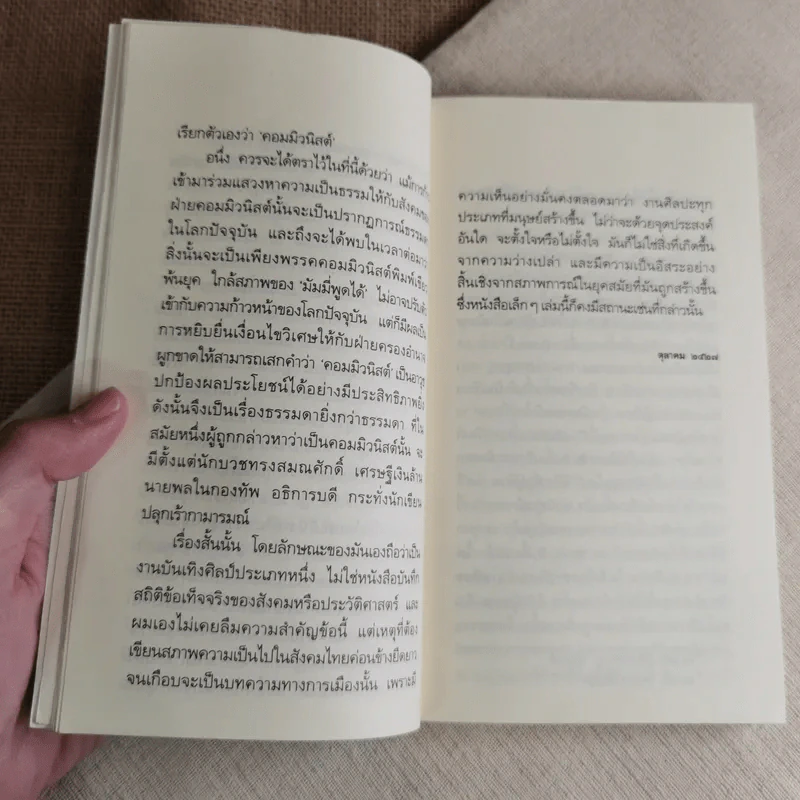 เรียกตัวเองว่า 'คอมมิวนิสต์'
อนึ่ง ควรจะได้ตราไว้ในที่นี้ด้วยว่า แม้การก้าว
เข้ามาร่วมแสวงหาความเป็นธรรมให้กับสังคมของ
ฝ่ายคอมมิวนิสต์นั้นจะเป็นปรากฏการณ์ธรรมดา
ในโลกปัจจุบัน และถึงจะได้พบในเวลาต่อมาว่า
สิ่งนั้นจะเป็นเพียงพรรคคอมมิวนิสต์พิมพ์เขียว
พ้นยุค ใกล้สภาพของ 'มัมมี่พูดได้' ไม่อาจปรับตัว
เข้ากับความก้าวหน้าของโลกปัจจุบัน แต่ก็มีผลเป็น
การหยิบยื่นเงื่อนไขวิเศษให้กับฝ่ายครองอำนาจ
ผูกขาดให้สามารถเสกคำว่า 'คอมมิวนิสต์' เป็นอาวุธ
ปกป้องผลประโยชน์ได้อย่างมีประสิทธิภาพยิ่ง
ดังนั้นจึงเป็นเรื่องธรรมดายิ่งกว่าธรรมดา ที่ใน
สมัยหนึ่งผู้ถูกกล่าวหาว่าเป็นคอมมิวนิสต์นั้น จะ
มีตั้งแต่นักบวชทรงสมณศักดิ์ เศรษฐีเงินล้าน
นายพลในกองทัพ อธิการบดี กระทั่งนักเขียน
ปลุกเร้ากามารมณ์
เรื่องสั้นนั้น โดยลักษณะของมันเองถือว่าเป็น
งานบันเทิงศิลป์ประเภทหนึ่ง ไม่ใช่หนังสือบันทึก
สถิติข้อเท็จจริงของสังคมหรือประวัติศาสตร์ และ
ผมเองไม่เคยลืมความสำคัญข้อนี้ แต่เหตุที่ต้อง
เขียนสภาพความเป็นไปในสังคมไทยค่อนข้างยืดยาว
จนเกือบจะเป็นบทความทางการเมืองนั้น เพราะมี
ความเห็นอย่างมั่นคงตลอดมาว่า งานศิลปะทุก
ประเภทที่มนุษย์สร้างขึ้น ไม่ว่าจะด้วยจุดประสงค์
อันใด จะตั้งใจหรือไม่ตั้งใจ มันก็ไม่ใช่สิ่งที่เกิดขึ้น
จากความว่างเปล่า และมีความเป็นอิสระอย่าง
สิ้นเชิงจากสภาพการณ์ในยุคสมัยที่มันถูกสร้างขึ้น
ซึ่งหนังสือเล็กๆ เล่มนี้ก็คงมีสถานะเช่นที่กล่าวนั้น
ตุลาคม ๒๕๒๗